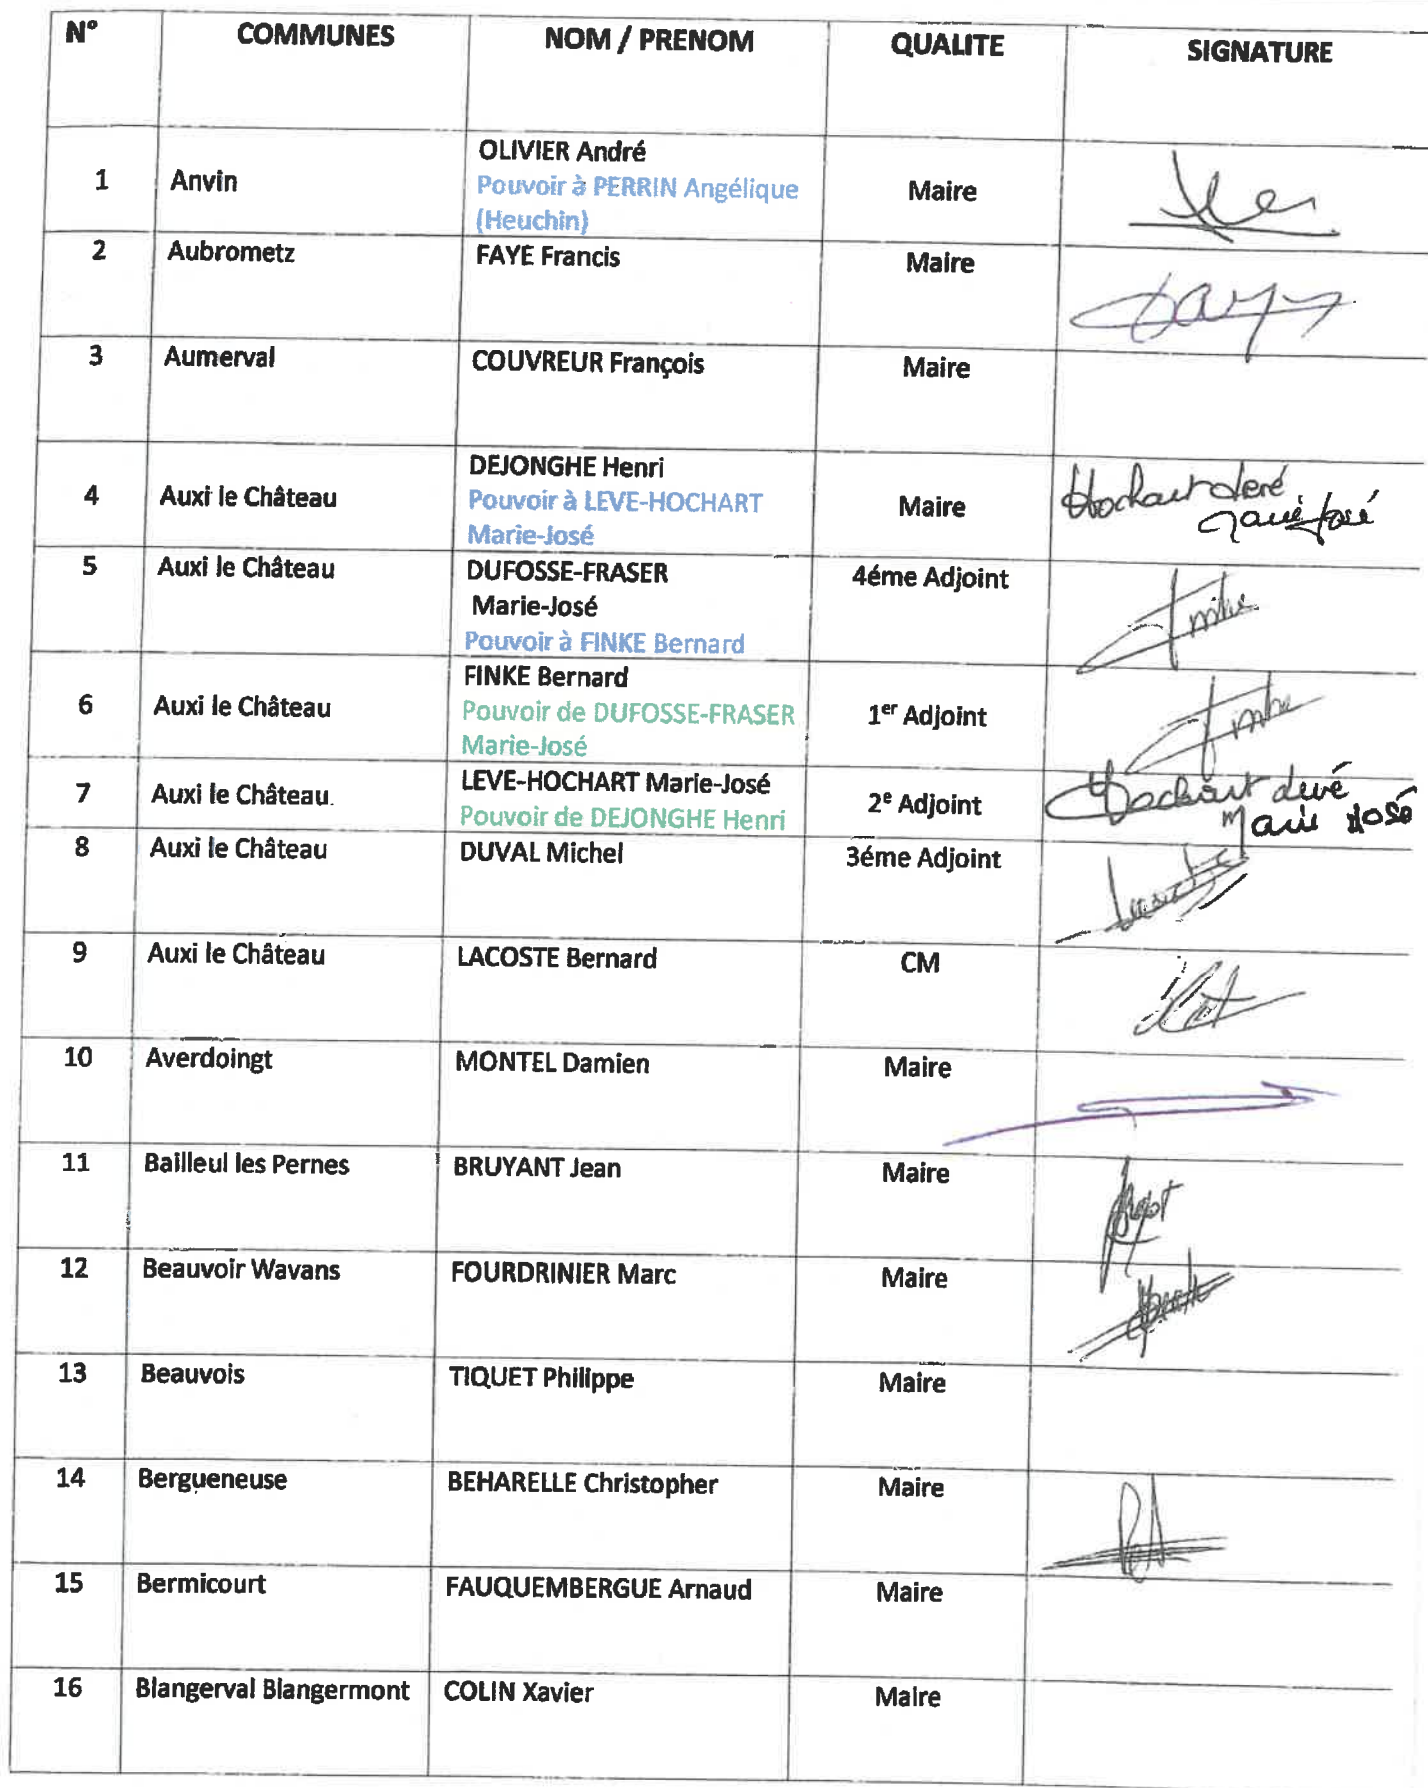 N° COMMUNES NOM / PRENOM QUALITE SIGNATURE
OLIVIER André
1 Anvin Pouvoir à PERRIN Angélique Maire
(Heuchin)
2 Aubrometz FAYE Francis Maire
3 Aumerval COUVREUR François Maire
DEJONGHE Henri
4 Auxi le Château Pouvoir à LEVE-HOCHART Maire Hochart
Marie-José
5 Auxi le Château DUFOSSE-FRASER 4éme Adjoint
Marie-José
Pouvoir à FINKE Bernard
FINKE Bernard
6 Auxi le Château Pouvoir de DUFOSSE-FRASER 1er Adjoint
Marie-José
7 Auxi le Château. LEVE-HOCHART Marie-José 2e Adjoint Hochart
Pouvoir de DEJONGHE Henri Marie José
8 Auxi le Château DUVAL Michel 3éme Adjoint
9 Auxi le Château LACOSTE Bernard CM
10 Averdoingt MONTEL Damien Maire
11 Bailleul les Pernes BRUYANT Jean Maire
12 Beauvoir Wavans FOURDRINIER Marc Maire
13 Beauvois TIQUET Philippe Maire
14 Bergueneuse BEHARELLE Christopher Maire
15 Bermicourt FAUQUEMBERGUE Arnaud Maire
16 Blangerval Blangermont COLIN Xavier Maire